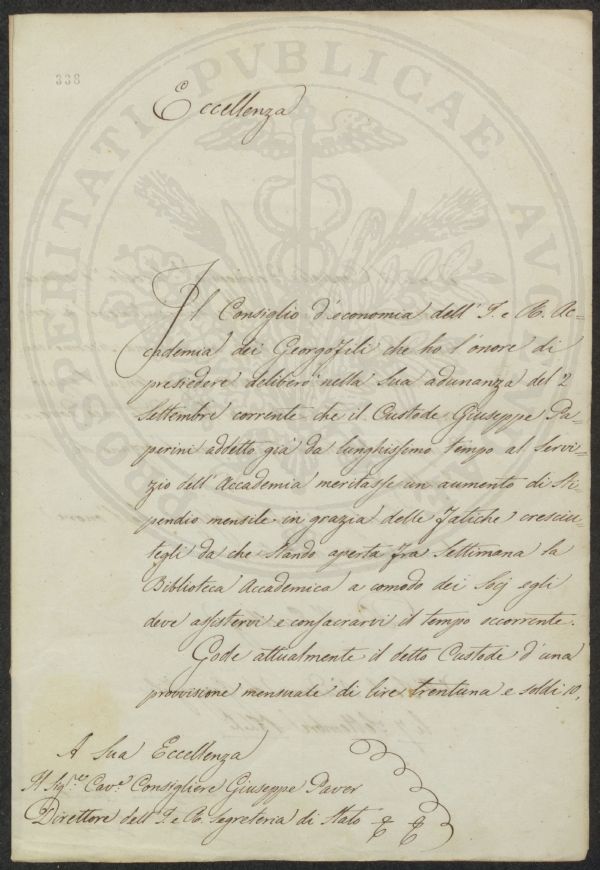 338
PROSPERITATI PVBLICAE AVGENDAE
Eccellenza
Il Consiglio d'economia dell' I. e R. Ac=
cademia dei Georgofili che ho l'onore di
presiedere deliberò nella sua adunanza del 2
Settembre corrente che il Custode Giuseppe Pa=
perini addetto già da lunghissimo tempo al servi=
zio dell'Accademia meritasse un aumento di Sti=
pendio mensile in grazia delle fatiche cresciu=
tegli da che stando aperta fra settimana la
Biblioteca Accademica a comodo dei Socj egli
deve assistervi e consacrarvi il tempo occorrente.
Gode attualmente il detto Custode d'una
provvisione mensuale di lire trentuna e soldi 10,
A Sua Eccellenza
Il Sig.re Cav.e Consigliere Giuseppe Paver
Direttore dell' I. e R. Segreteria di Stato